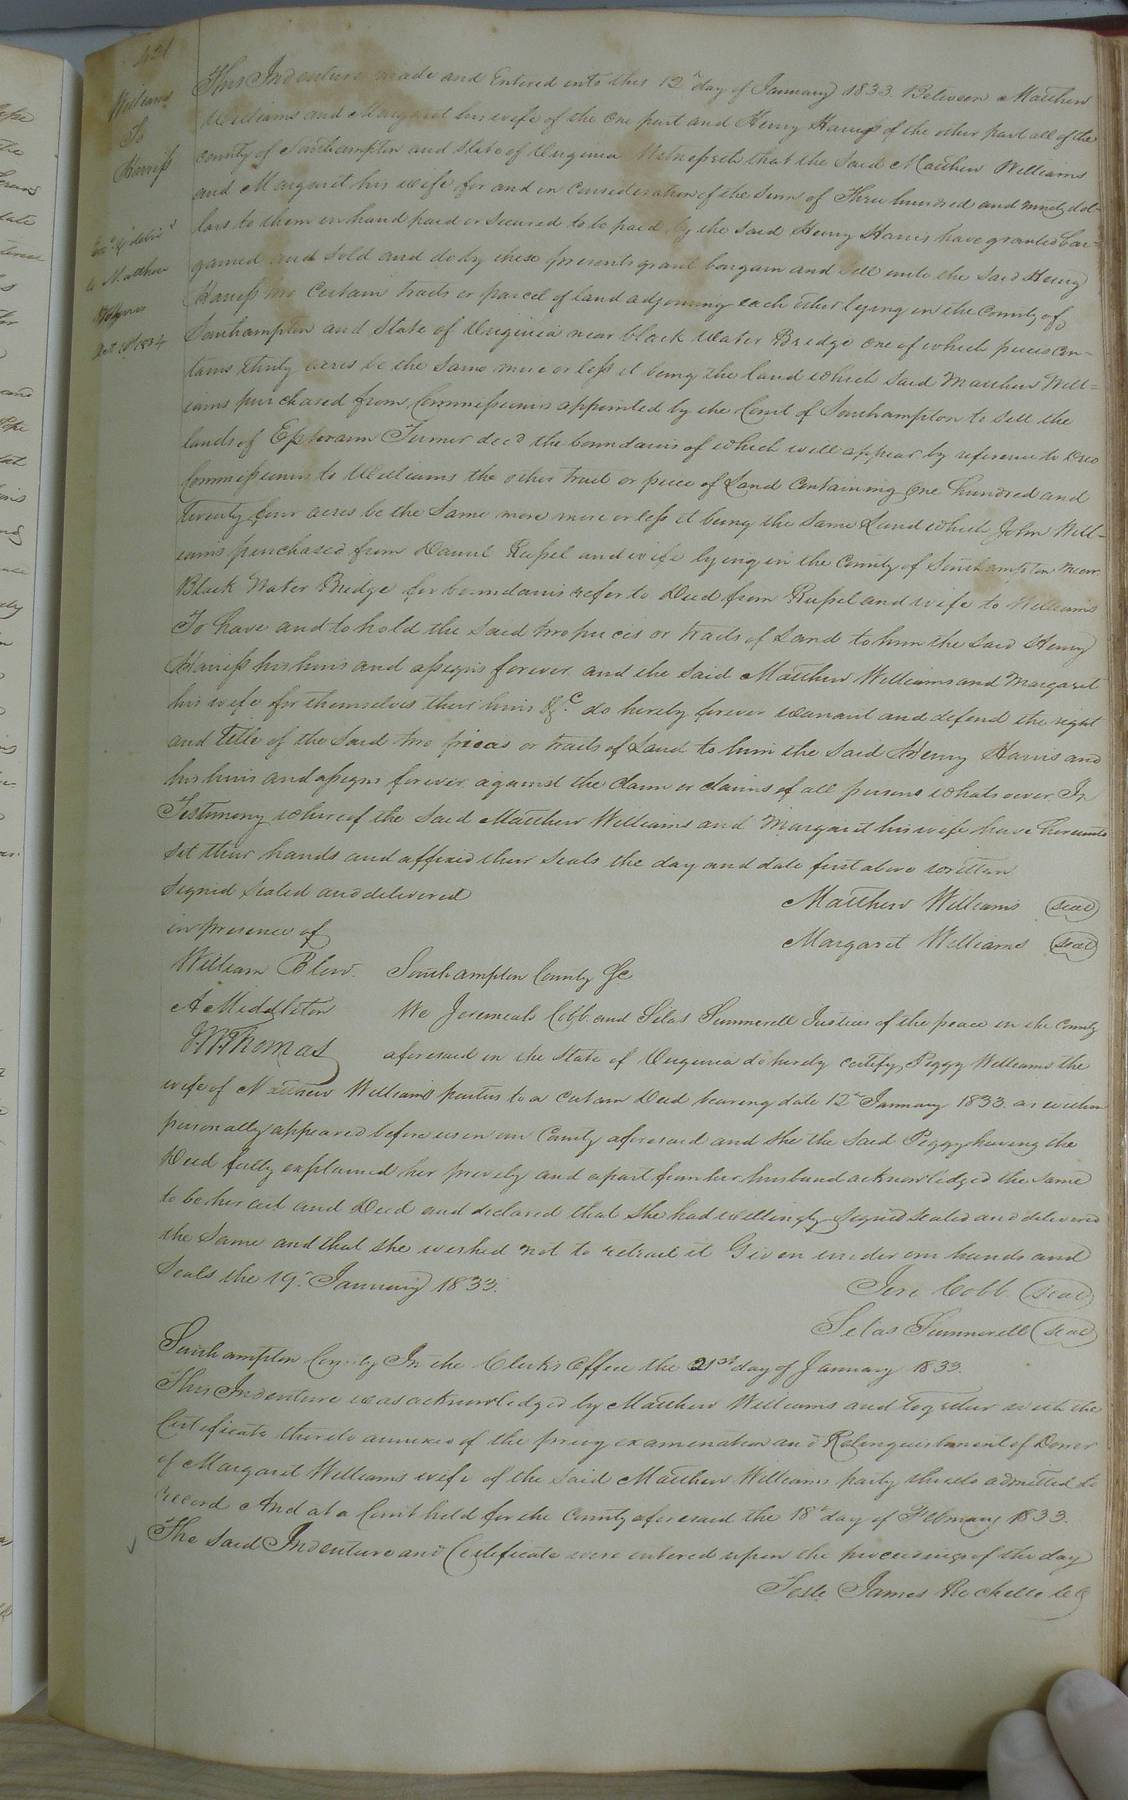 421
Williams
To
Harriss
Exd & delivd
to Matthew
Williams
Oct 18th 1834
This Indenture made and Entered into this 12th day of January 1833 Between Matthew
Williams and Margaret his wife of the one part and Henry Harriss of the other part all of the
county of Southampton and State of Virginia Witnesseth that the Said Matthew Williams
and Margaret his wife for and in consideration of the Sum of Three hundred and ninety dol-
lars to them in hand paid or secured to be paid by the said Henry Harris have granted bar-
gained and sold and do by these presents grant bargain and sell unto the said Henry
Harriss two certain tracts or parcel of land adjoining each other lying in the County of
Southampton and State of Virginia near black Water Bridge one of which pieces con-
tains thirty acres be the same more or less it being the land which said Matthew Will=
iams purchased from Commissioners appointed by the Court of Southampton to sell the
lands of Ephraim Turner decd the boundaries of which will appear by reference to Deed
Commissioners to Williams the other tract or piece of Land containing one hundred and
twenty four acres be the Same more more or less it being the same Land which John Will-
iams purchased from Daniel Russel and wife lying in the County of Southampton near
Black Water Bridge for boundaries refer to Deed from Russel and wife to Williams
To have and to hold the said two pieces or tracts of Land to him the said Henry
Harriss his heirs and assigns forever and the said Matthew Williams and Margaret
his wife for themselves their heirs &c do hereby forever warrant and defend the right
and title of the said two pieces or tracts of Land to him the said Henry Harris and
his heirs and assigns forever against the claim or claims of all persons whatsoever In
Testimony whereof the said Matthew Williams and Margaret his wife have hereunto
set their hands and affixed their seals the day and date first above written
Signed Sealed and delivered
Matthew Williams (seal)
in presence of
Margaret Williams (seal)
William Blow.
Southampton County Sc
A Middleton
We Jeremiah Cobb and Silas Summerell Justices of the peace in the County
Thomas
aforesaid in the State of Virginia do hereby certify Peggy Williams the
wife of Matthew Williams parties to a certain Deed bearing date 12th January 1833 as within
personally appeared before us in our County aforesaid and she the said Peggy having the
Deed fully explained her privily and apart from her husband acknowledged the same
to be her act and Deed and declared that she had willingly signed sealed and delivered
the Same and that she wished not to retract it Given under our hands and
Seals the 19th January 1833.
Jere Cobb (seal)
Silas Summerell (seal)
Southampton County In the Clerks Office the 21st day of January 1833.
This Indenture was acknowledged by Matthew Williams and together with the
Certificate thereto annexed of the privy examination and Relinquishment of Dower
of Margaret Williams wife of the said Matthew Williams party thereto admitted to
record And at a Court held for the County aforesaid the 18th day of February 1833.
The said Indenture and Certificate were entered upon the proceedings of the day
Teste James Rochelle CC